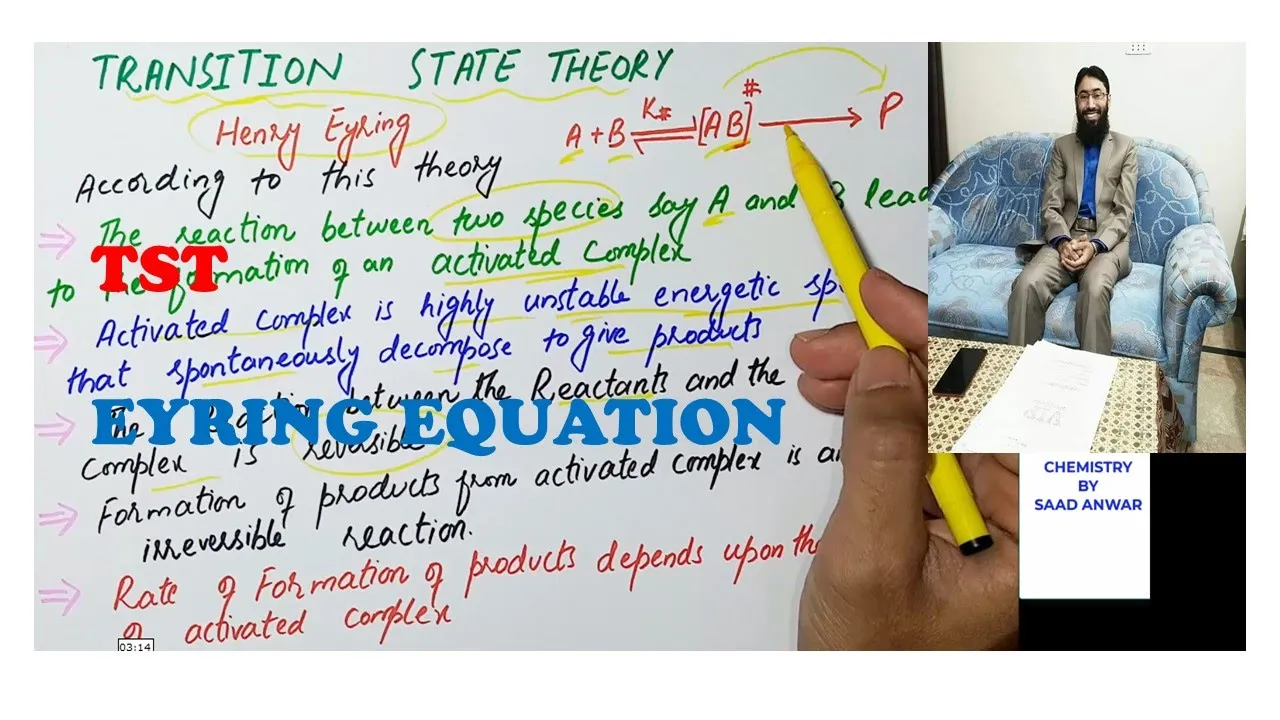 TRANSITION STATE THEORY
Henry Eyring
A + B ⇌ K# [AB]# → P
According to this theory
⇒ The reaction between two species say A and B lead
to the formation of an activated complex
TST
⇒ Activated complex is highly unstable energetic sp
that spontaneously decompose to give products
⇒ The between the Reactants and the
complex is reversible
EYRING EQUATION
⇒ Formation of products from activated complex is a
irreversible reaction.
⇒ Rate of Formation of products depends upon th
of activated complex
03:14
CHEMISTRY
BY
SAAD ANWAR